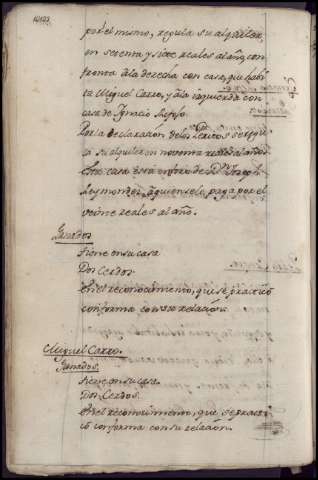 por el mismo, regula su alquiler,
en setenta y siete reales al año, con
fronta a la derecha con casa, que havi
ta Miguel Carro, y a la izquierda con
casa de Ignacio
Por la declaracion de los Peritos se regu
la su alquiler en noventa reales al año
esta casa esta en foro de Dn Joseph
Reymondez, a quien se le paga por el
veinte reales al año.
Ganados
Tiene en su casa
Dos Cerdos.
En el reconocimiento, que se practicó
conforma con su relacion.
Miguel Carro.
Ganados.
Tiene en su casa.
Dos Cerdos.
En el reconocimiento, que se practi
có conforma con su relacion.